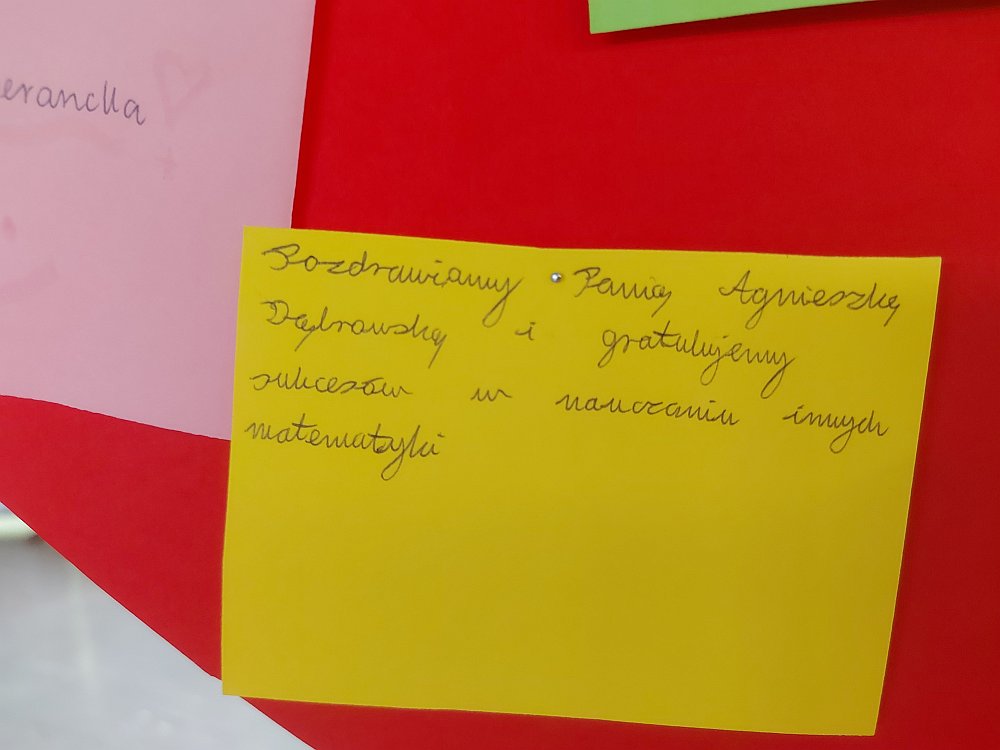 erancka
Pozdrawiamy Panią Agnieszkę
Dąbrowską i gratulujemy
sukcesów w nauczaniu innych
matematyki